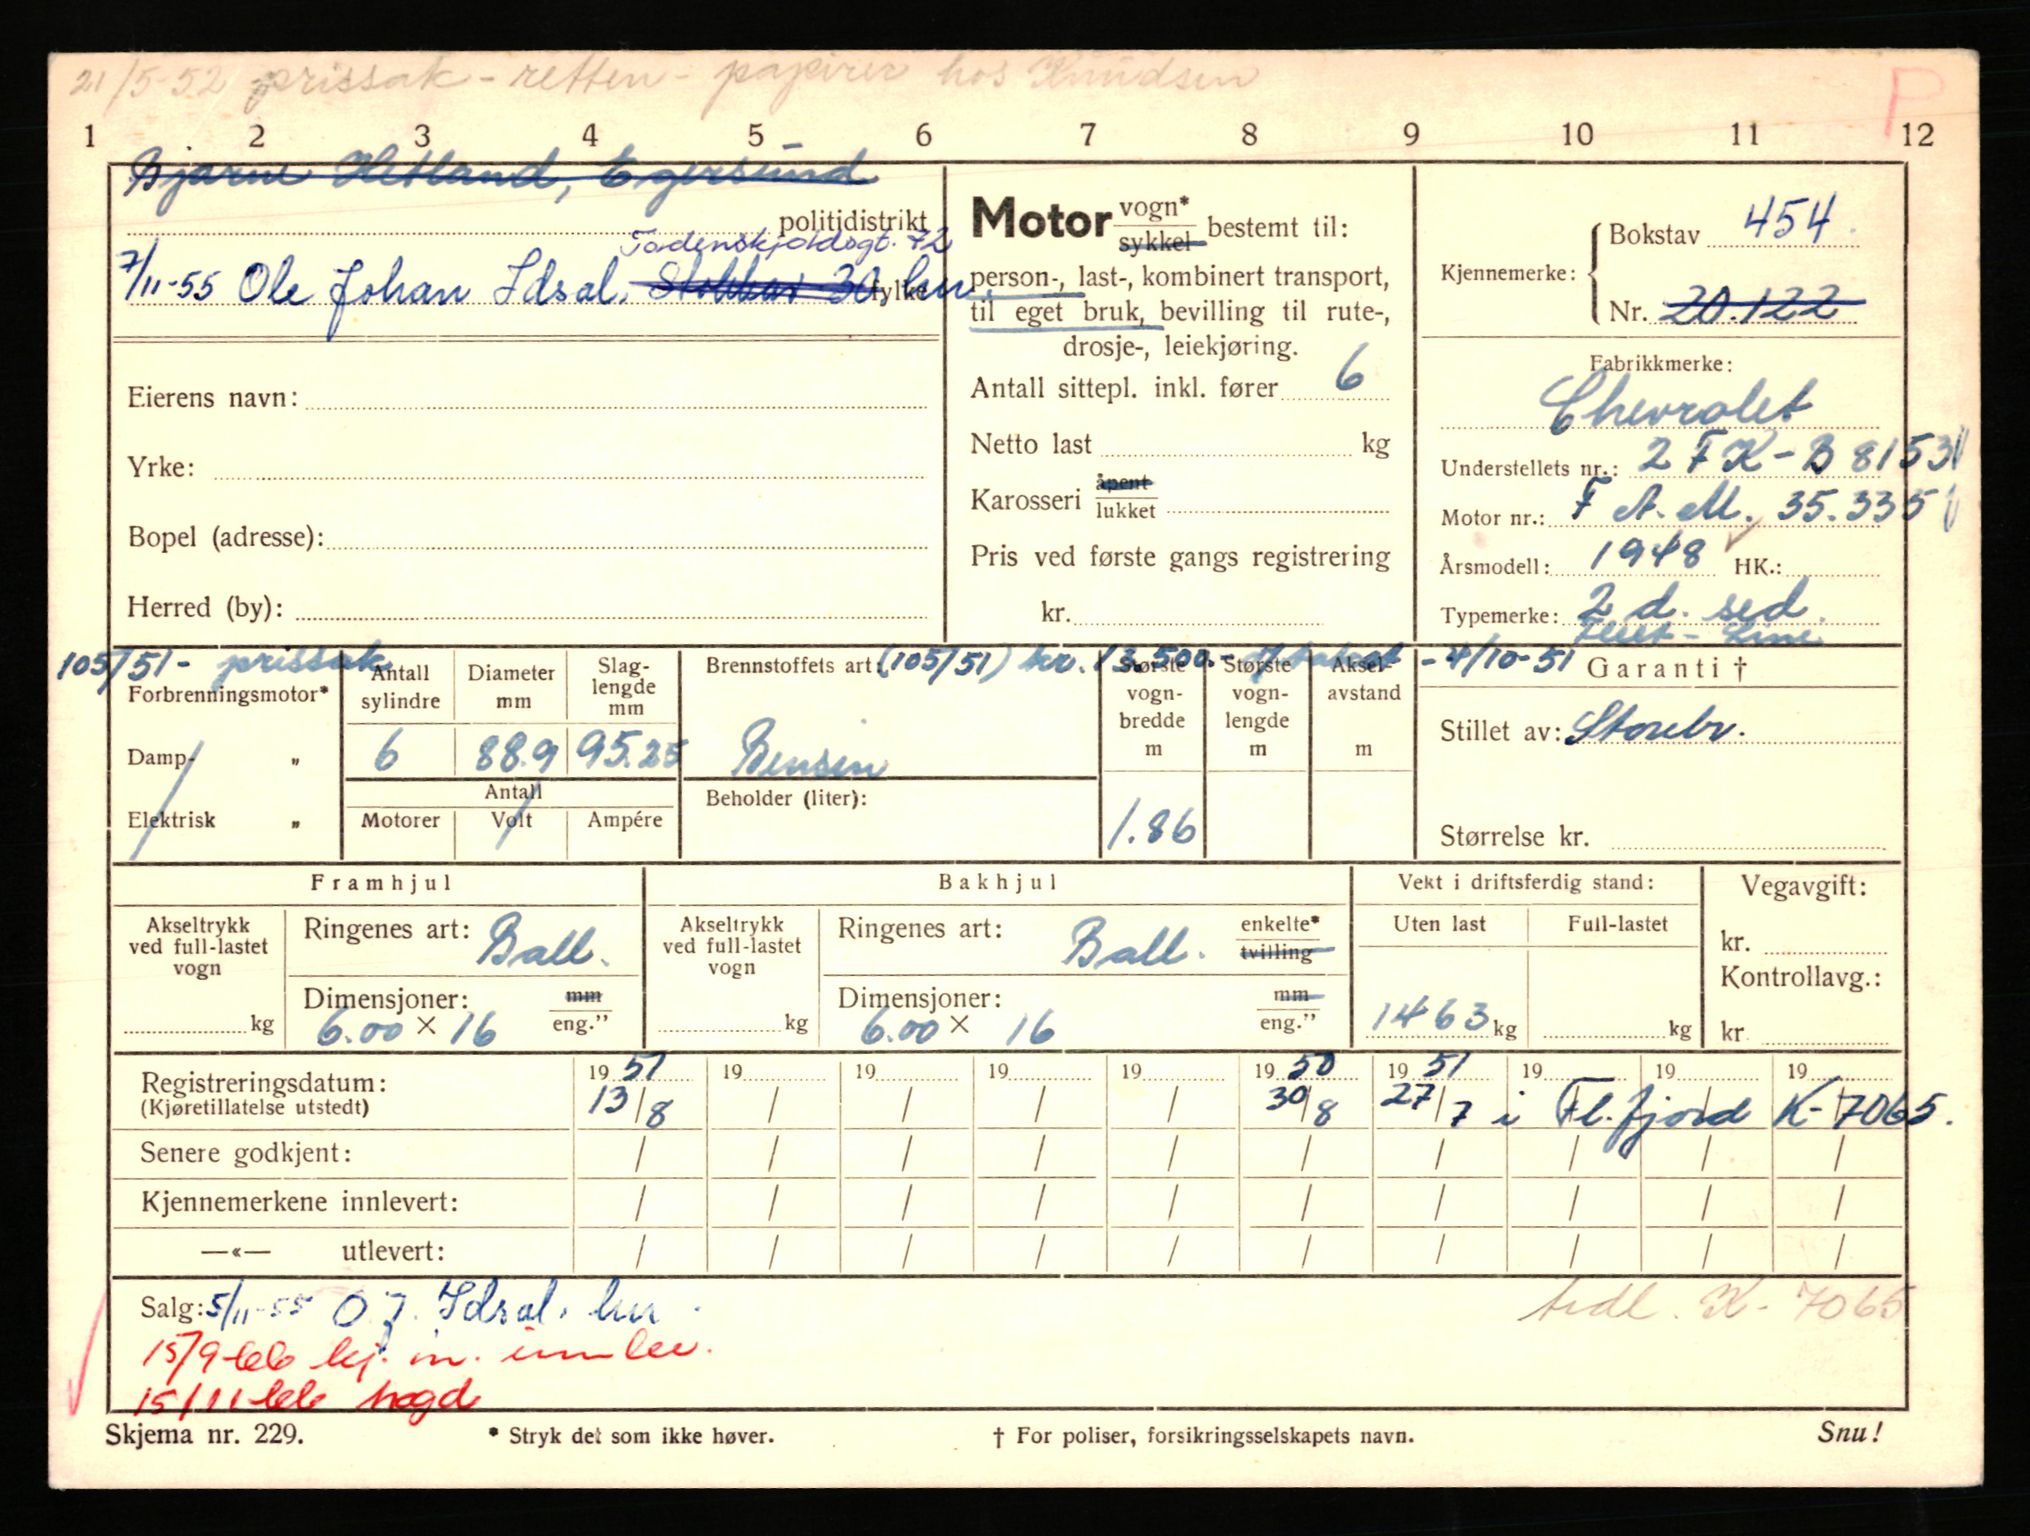 21/5-52 prissak - retten - papirer hos Knudsen P
1 2 3 4 5 6 7 8 9 10 11 12
Bjarne Hetland, Egersund
politidistrikt
Tordenskjoldsgt. 72
7/11-55 Ole Johan Idsal, Stokkav 30 fylke her.
Eierens navn:
Yrke:
Bopel (adresse):
Herred (by):
Motor vogn* sykkel bestemt til:
person-, last-, kombinert transport,
til eget bruk, bevilling til rute-,
drosje-, leiekjøring.
Antall sittepl. inkl. fører 6
Netto last kg
Karosseri åpent lukket
Pris ved første gangs registrering
kr.
Kjennemerke: Bokstav 454
Nr. 20.122
Fabrikkmerke:
Chevrolet
Understellets nr.: 2 FK-B 8153
Motor nr.: F A.M. 35.335
Årsmodell: 1948 HK.:
Typemerke: 2 d. sed.
Fleet-Line
105/51 - prissak (105/51) kr. 13.500.- - 4/10-51
Forbrenningsmotor*
Damp- „
Elektrisk „
Antall sylindre Diameter mm Slag-lengde mm
6 88.9 95.25
Antall
Motorer Volt Ampére
Brennstoffets art:
Bensin
Beholder (liter):
Største vogn-bredde m Største vogn-lengde m Aksel-avstand m
1.86
Garanti †
Stillet av: Storebr.
Størrelse kr.
Framhjul Bakhjul Vekt i driftsferdig stand: Vegavgift:
Akseltrykk ved full-lastet vogn kg
Ringenes art: Ball.
Dimensjoner: mm eng.”
6.00 × 16
Akseltrykk ved full-lastet vogn kg
Ringenes art: Ball. enkelte* tvilling
Dimensjoner: mm eng.”
6.00 × 16
Uten last Full-lastet
1463 kg kg
kr.
Kontrollavg.:
kr
Registreringsdatum: 19 51 19 19 19 19 19 50 19 51 19 19 19
(Kjøretillatelse utstedt) 13/8 / / / / 30/8 27/7 i Fl.fjord K-7065.
Senere godkjent: / / / / / / / / / /
Kjennemerkene innlevert: / / / / / / / / / /
—«— utlevert: / / / / / / / / / /
Salg: 5/11-55 O.J. Idsal, her. tidl. K-7065
15/9-66 kj.m. innlev.
15/11-66 hogd
Skjema nr. 229. * Stryk det som ikke høver. † For poliser, forsikringsselskapets navn. Snu!